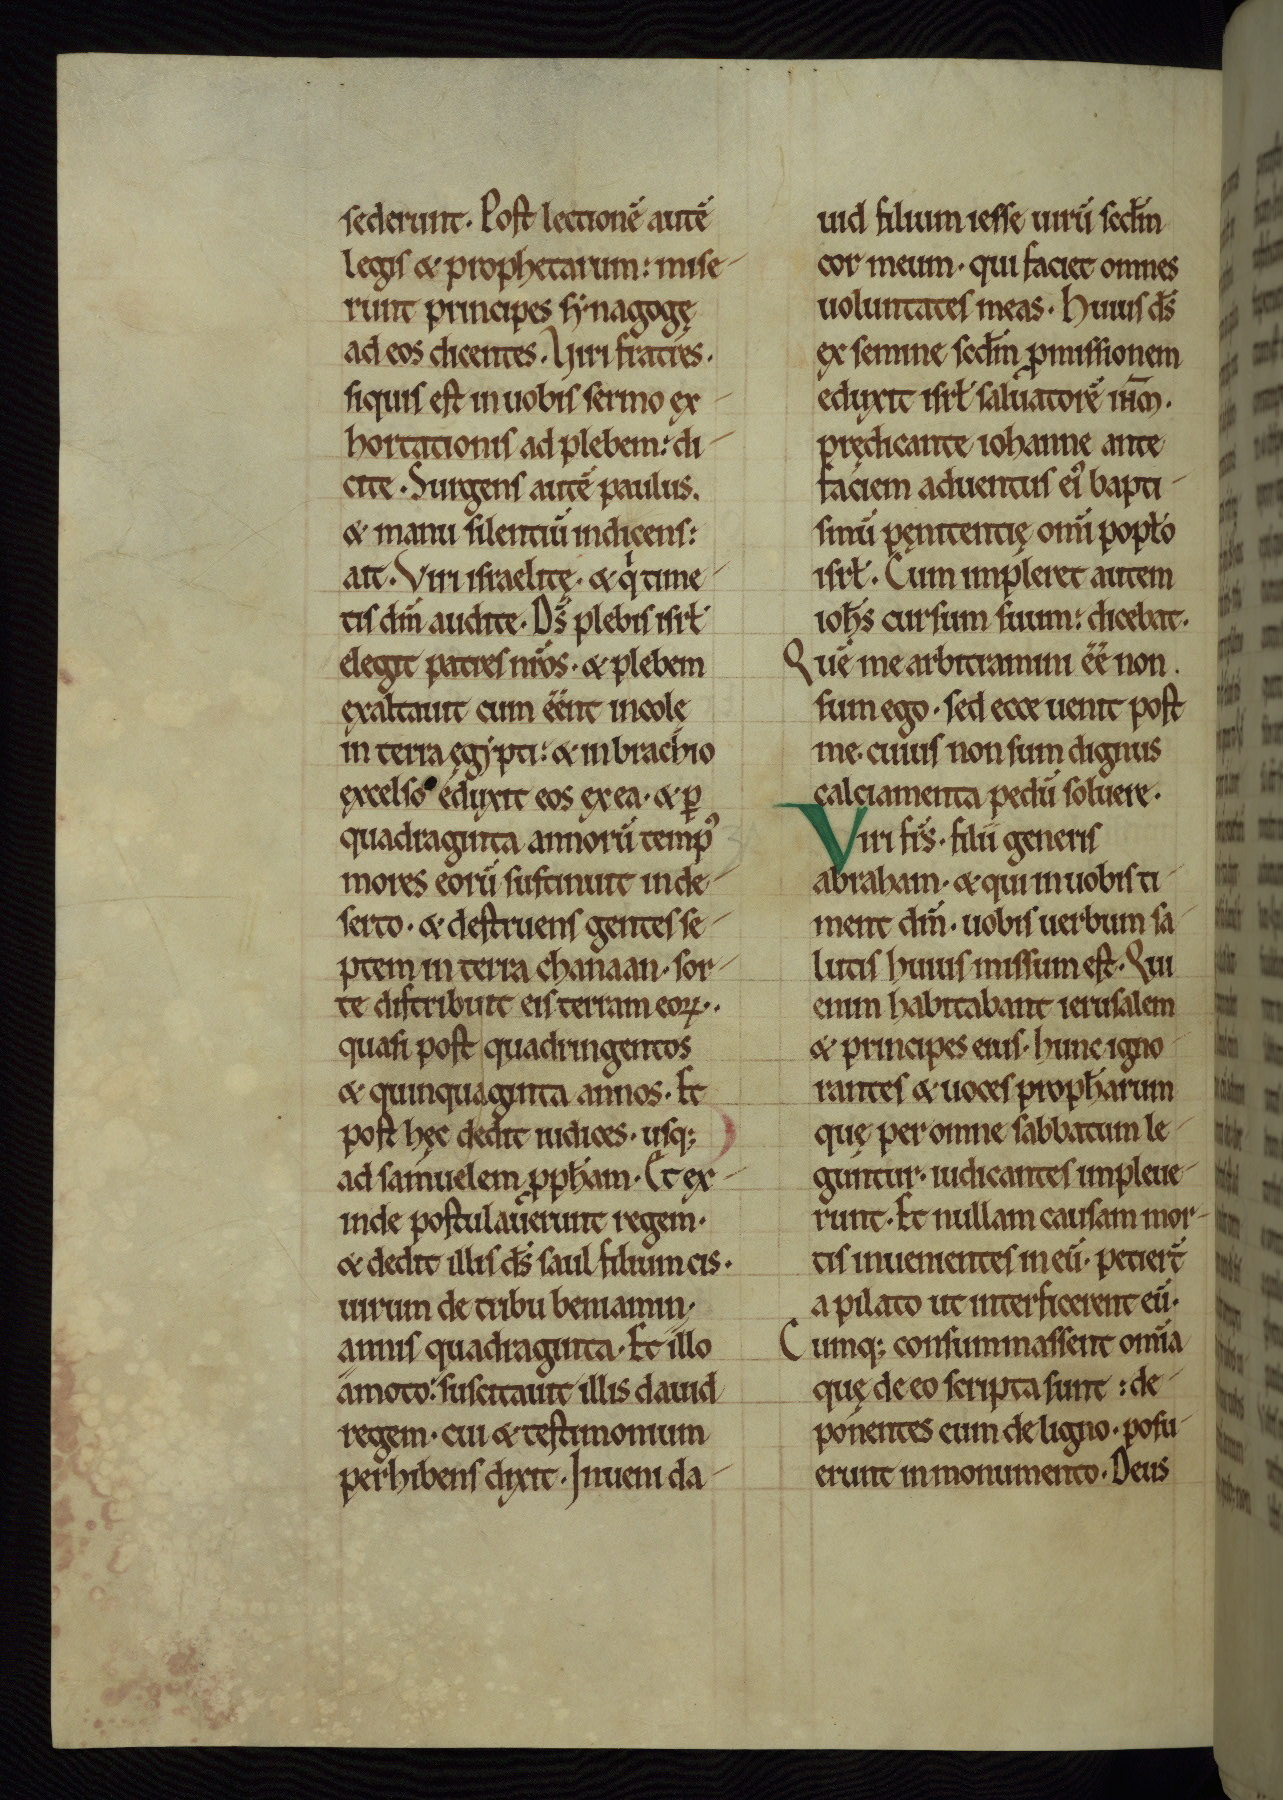 sederunt. Post lectionē autē
legis & prophetarum: mise-
runt principes synagogę
ad eos dicentes. Viri fratres.
siquis est in uobis sermo ex-
hortationis ad plebem: di-
cite. Surgens autē paulus.
& manu silentiū indicens:
ait. Viri israelitę. & qͥ time-
tis dm̄ audite. Ds̄ plebis isrƚ
elegit patres nr̄os. & plebem
exaltauit cum ēēnt incolę
in terra ęgypti: & in brachio
excelso eduxit eos ex ea. & ꝑ
quadraginta annorū tempꝰ
mores eorū sustinuit in de-
serto. & destruens gentes se-
ptem in terra chanaan. sor-
te distribuit eis terram eoꝝ.
quasi post quadringentos
& quinquaginta annos. Et
post hęc dedit iudices. usq;
ad samuelem ꝓpħam. Et ex-
inde postulauerunt regem.
& dedit illis ds̄ saul filium cis.
uirum de tribu beniamin.
annis quadraginta. Et illo
amoto: suscitauit illis dauid
regem. cui & testimonium
perhibens dixit. Inueni da-
uid filium iesse uirū scdm̄
cor meum. qui faciet omnes
uoluntates meas. Huius ds̄
ex semine scdm̄ ꝓmissionem
eduxit isrƚ saluatorē ihm̄.
prędicante iohanne ante
faciem aduentus eiꝰ bapti-
smū pęnitentię omī popƚo
isrƚ. Cum impleret autem
iohs̄ cursum suum: dicebat.
Quē me arbitramini ēē non
sum ego. sed ecce uenit post
me. cuius non sum dignus
calciamenta pedū soluere.
Viri frs̄. filii generis
abraham. & qui in uobis ti-
ment dm̄. uobis uerbum sa-
lutis huius missum est. Qui
enim habitabant ierusalem
& principes eius. hunc igno-
rantes & uoces propħarum
quę per omne sabbatum le-
guntur. iudicantes impleue-
runt. Et nullam causam mor-
tis inuenientes in eū. petier̄t
a pilato ut interficerent eū.
Cumq; consummassent om̄ia
quę de eo scripta sunt: de-
ponentes eum de ligno. posu-
erunt in monumento. Deus